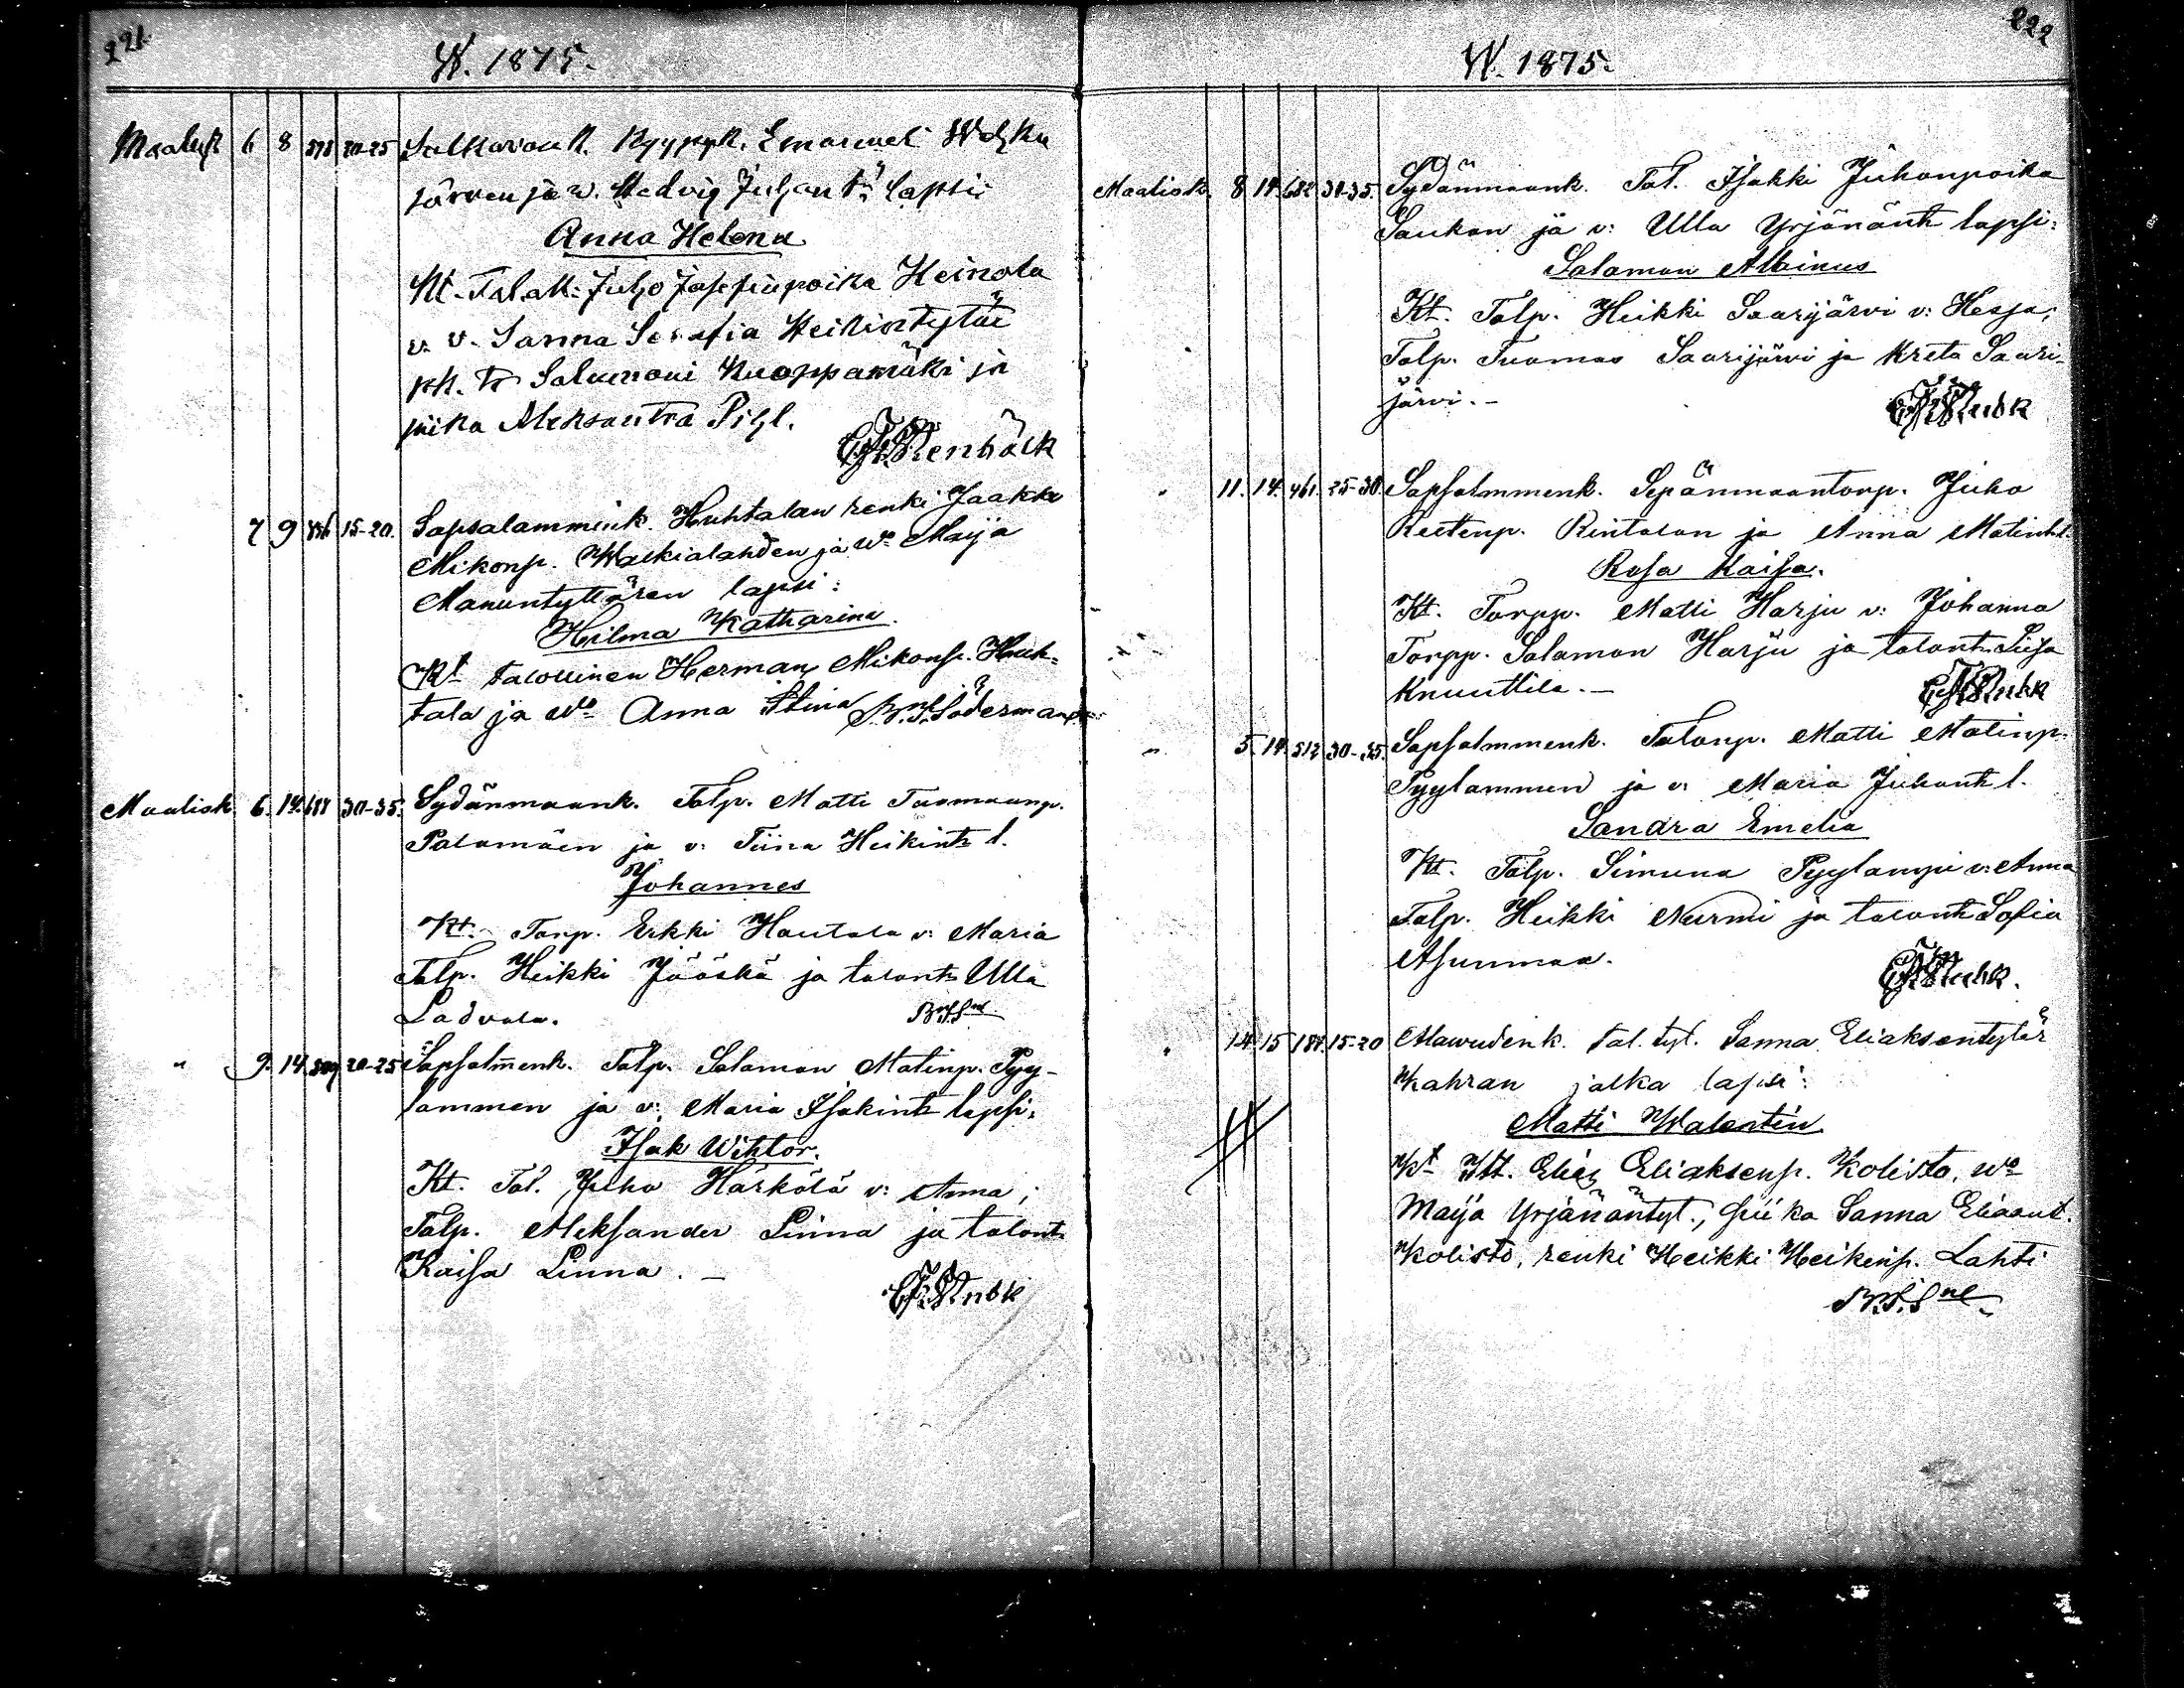 221.
W. 1875.
Maalisk 6 8 20-25 Emanuel
järven ja w. Hedvig Juhan tr lapsi:
Anna Helena
Kt. Juho Josefinpoika Heinola
v. v. Sanna Serafia Heikintytär
tr Salumoni Kuoppamäki ja
piika Aleksantra Pihl.
7 9 15-20. Sapsalammink. Huhtalan renki Jaakko
Mikonp. ja wo Maija
Manuntyttären lapsi:
Hilma Katharina.
Kt talollinen Herman Mikonp. Huh-
tala ja wo Anna Stina Söderman
Maalisk. 6. 14. 30-35. Sydänmaank. Talp. Matti Tuomaanp.
Palomäen ja v: Tiina Heikintr l.
Johannes
Kt. Torp. Erkki Hautala v: Maria
Talp. Heikki Jääskä ja talontr Ulla
Ladvala.
" 9. 14. 509 20-25 Sapsalmenk. Talp. Salamon Matinp. Pyy-
lammen ja v: Maria Isakintr lapsi:
Isak Wihtor.
Kt. Tal. Juho Härkölä v: Anna;
Talp. Aleksander Linna ja talontr
Kaisa Linna. –
222
W. 1875.
Maalisk. 8 14. 682 30-35. Sydänmaank. Tal. Isakki Juhanpoika
Saukon ja v: Ulla Yrjänäntr lapsi:
Salamon Albinus
Kt. Talp. Heikki Saarijärvi v: Hesja;
Talp. Tuomas Saarijärvi ja Kreta Saari-
järvi. –
" 11. 14. 461. 25-30. Sapsalmmenk. Sepänmaantorp. Juho
Rintalan ja Anna Matintr l.
Rosa Kaisa.
Kt. Torpp. Matti Harju v: Johanna
Torpp. Salamon Harju ja talontr Liisa
Knuuttila. –
" 5. 14. 512 30-35. Sapsalmmenk. Talonp. Matti Matinp.
Pyylammen ja v: Maria Juhontr l.
Sandra Emelia
Kt. Talp. Simuna Pyylampi v: Anna
Talp. Heikki Nurmi ja talontr Sofia
Asunmaa.
" 14. 15 184 15-20 Alavudenk. tal. tyt. Sanna Eliaksentytär
Kahran jalka lapsi:
Matti Walentin
Kt Itt. Elias Eliaksenp. Kolisto, wo
Maija Yrjänäntyt., piika Sanna Eliaant.
Kolisto, renki Heikki Heikinp. Lahti